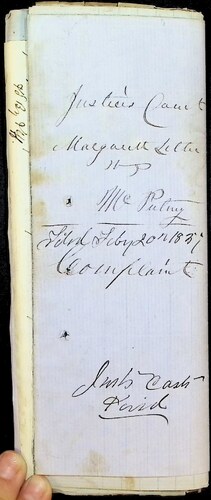 Justices Court
Margarett Letter
vs
Mc Putny
Filed Feby 20th 1857
Complaint
Just Cost
Paid